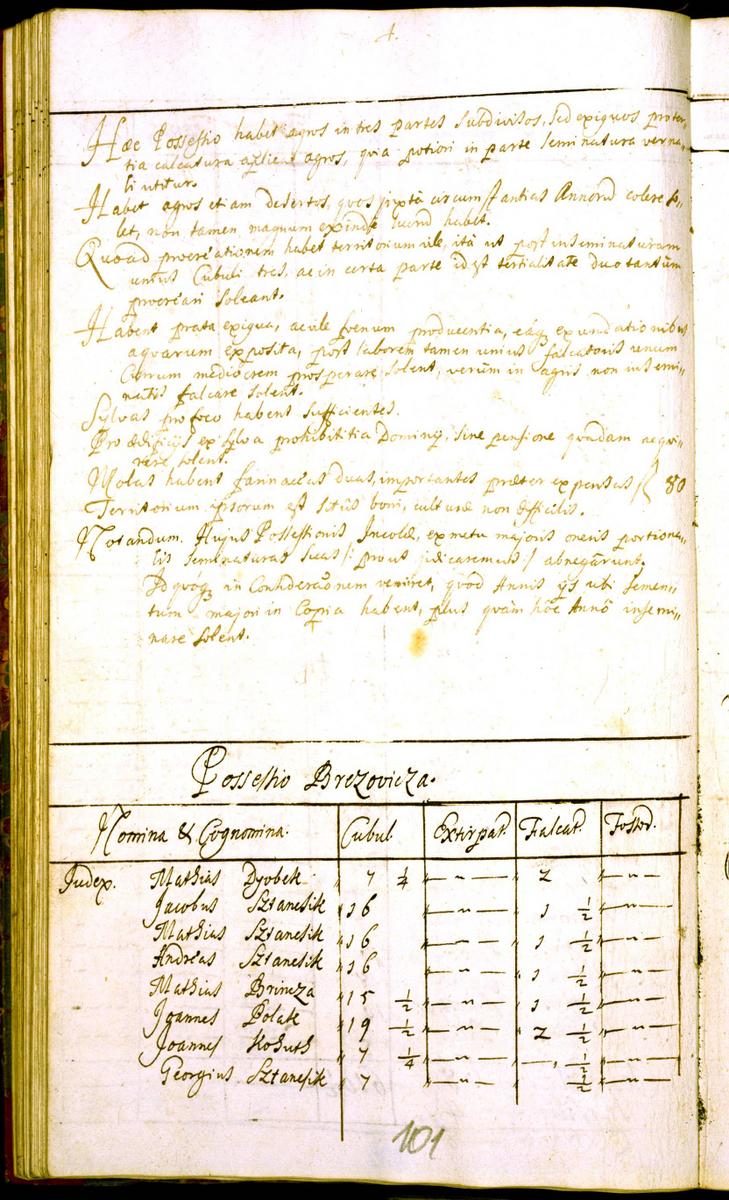 4.
Hæc Possessio habet agros in tres partes subdivisos, sed exiguos
tia calcatura agros, quia potiori in parte seminatura verna„
li utitur.
Habet agros etiam desertos, quos juxta circumstantias Annorū colere so„
let, non tamen magnum exinde lucrū habet.
Quoad procreationem habet territorium vile, ità ut post inseminaturam
unius Cubuli tres, ac in certa parte id est tertialitate duo tantùm
procreari soleant.
Habent prata exigua, ac vile fœnum producentia, eáq exundationibus
aquarum exposita, post laborem tamen unius falcatoris unum
Currum mediocrem prosperare solent, verùm in agris non insemi„
natis falcare solent.
Sylvas pro foco habent sufficientes.
Pro ædificijs ex sylva prohibititia Dominij, sine pensione quadam acqui„
rere solent.
Molas habent farinaceas duas, importantes præter expensas f 80
Territorium ipsorum est sitûs boni, culturæ non difficilis.
Notandum. Hujus Possessionis Incolæ, ex metu majoris oneris portiona„
lis seminaturas suas /: prout judicaremus :/ abnegârunt.
Id quoq in Considerāōnem veniret, quòd Annis ijs ubi semen„
tum majori in Copia habent, plus quàm hōc Annō insemi„
nare solent.
Possessio Brezovicza.
Nomina & Cognomina. Cubul. Extirpat. Falcat. Fossor.
Judex. Mathias Dzobek „ 7 1/4 „—„— „ 2 „—„—
Jacobus Sztanesik „ 16 „—„— „ 1 1/2 „—„—
Mathias Sztanesik „ 16 „—„— „ 1 1/2 „—„—
Andreas Sztanesik „ 16 „—„— „ 1 1/2 „—„—
Mathias Brincza „ 15 1/2 „—„— „ 1 1/2 „—„—
Joannes Polak „ 19 1/2 „—„— „ 2 1/2 „—„—
Joannes Kohuth „ 7 1/4 „—„— „—„ 1/2 „—„—
Georgius Sztanesik „ 7 „—„— „ 1/2 „—„—
101